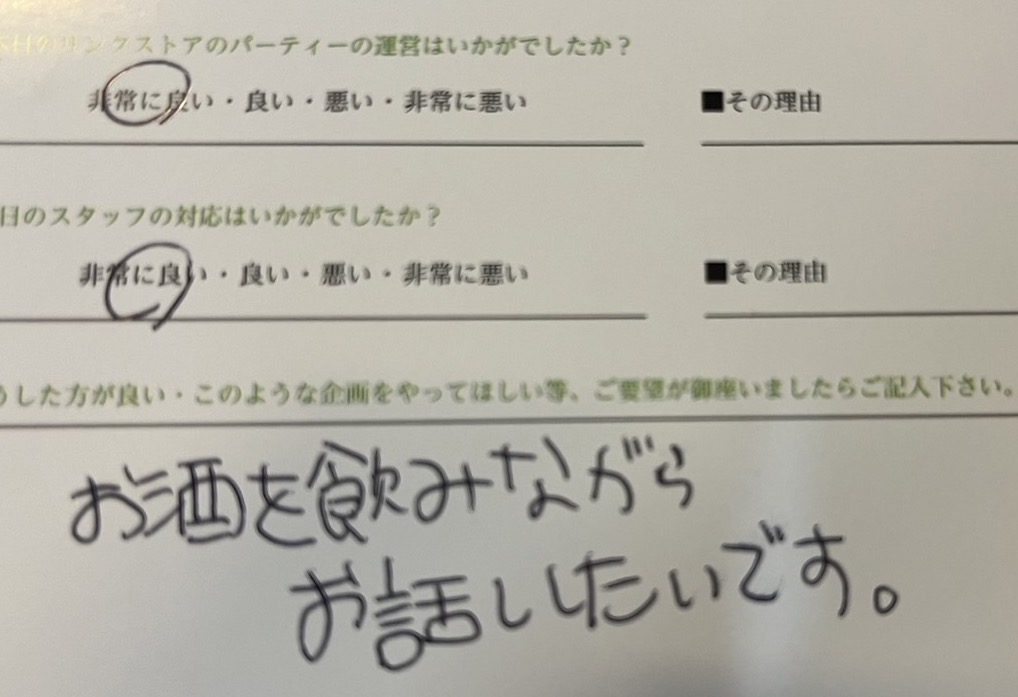 リンクストアのパーティーの運営はいかがでしたか？
非常に良い・良い・悪い・非常に悪い ■その理由
日のスタッフの対応はいかがでしたか？
非常に良い・良い・悪い・非常に悪い ■その理由
うした方が良い・このような企画をやってほしい等、ご要望が御座いましたらご記入下さい。
お酒を飲みながら
お話ししたいです。